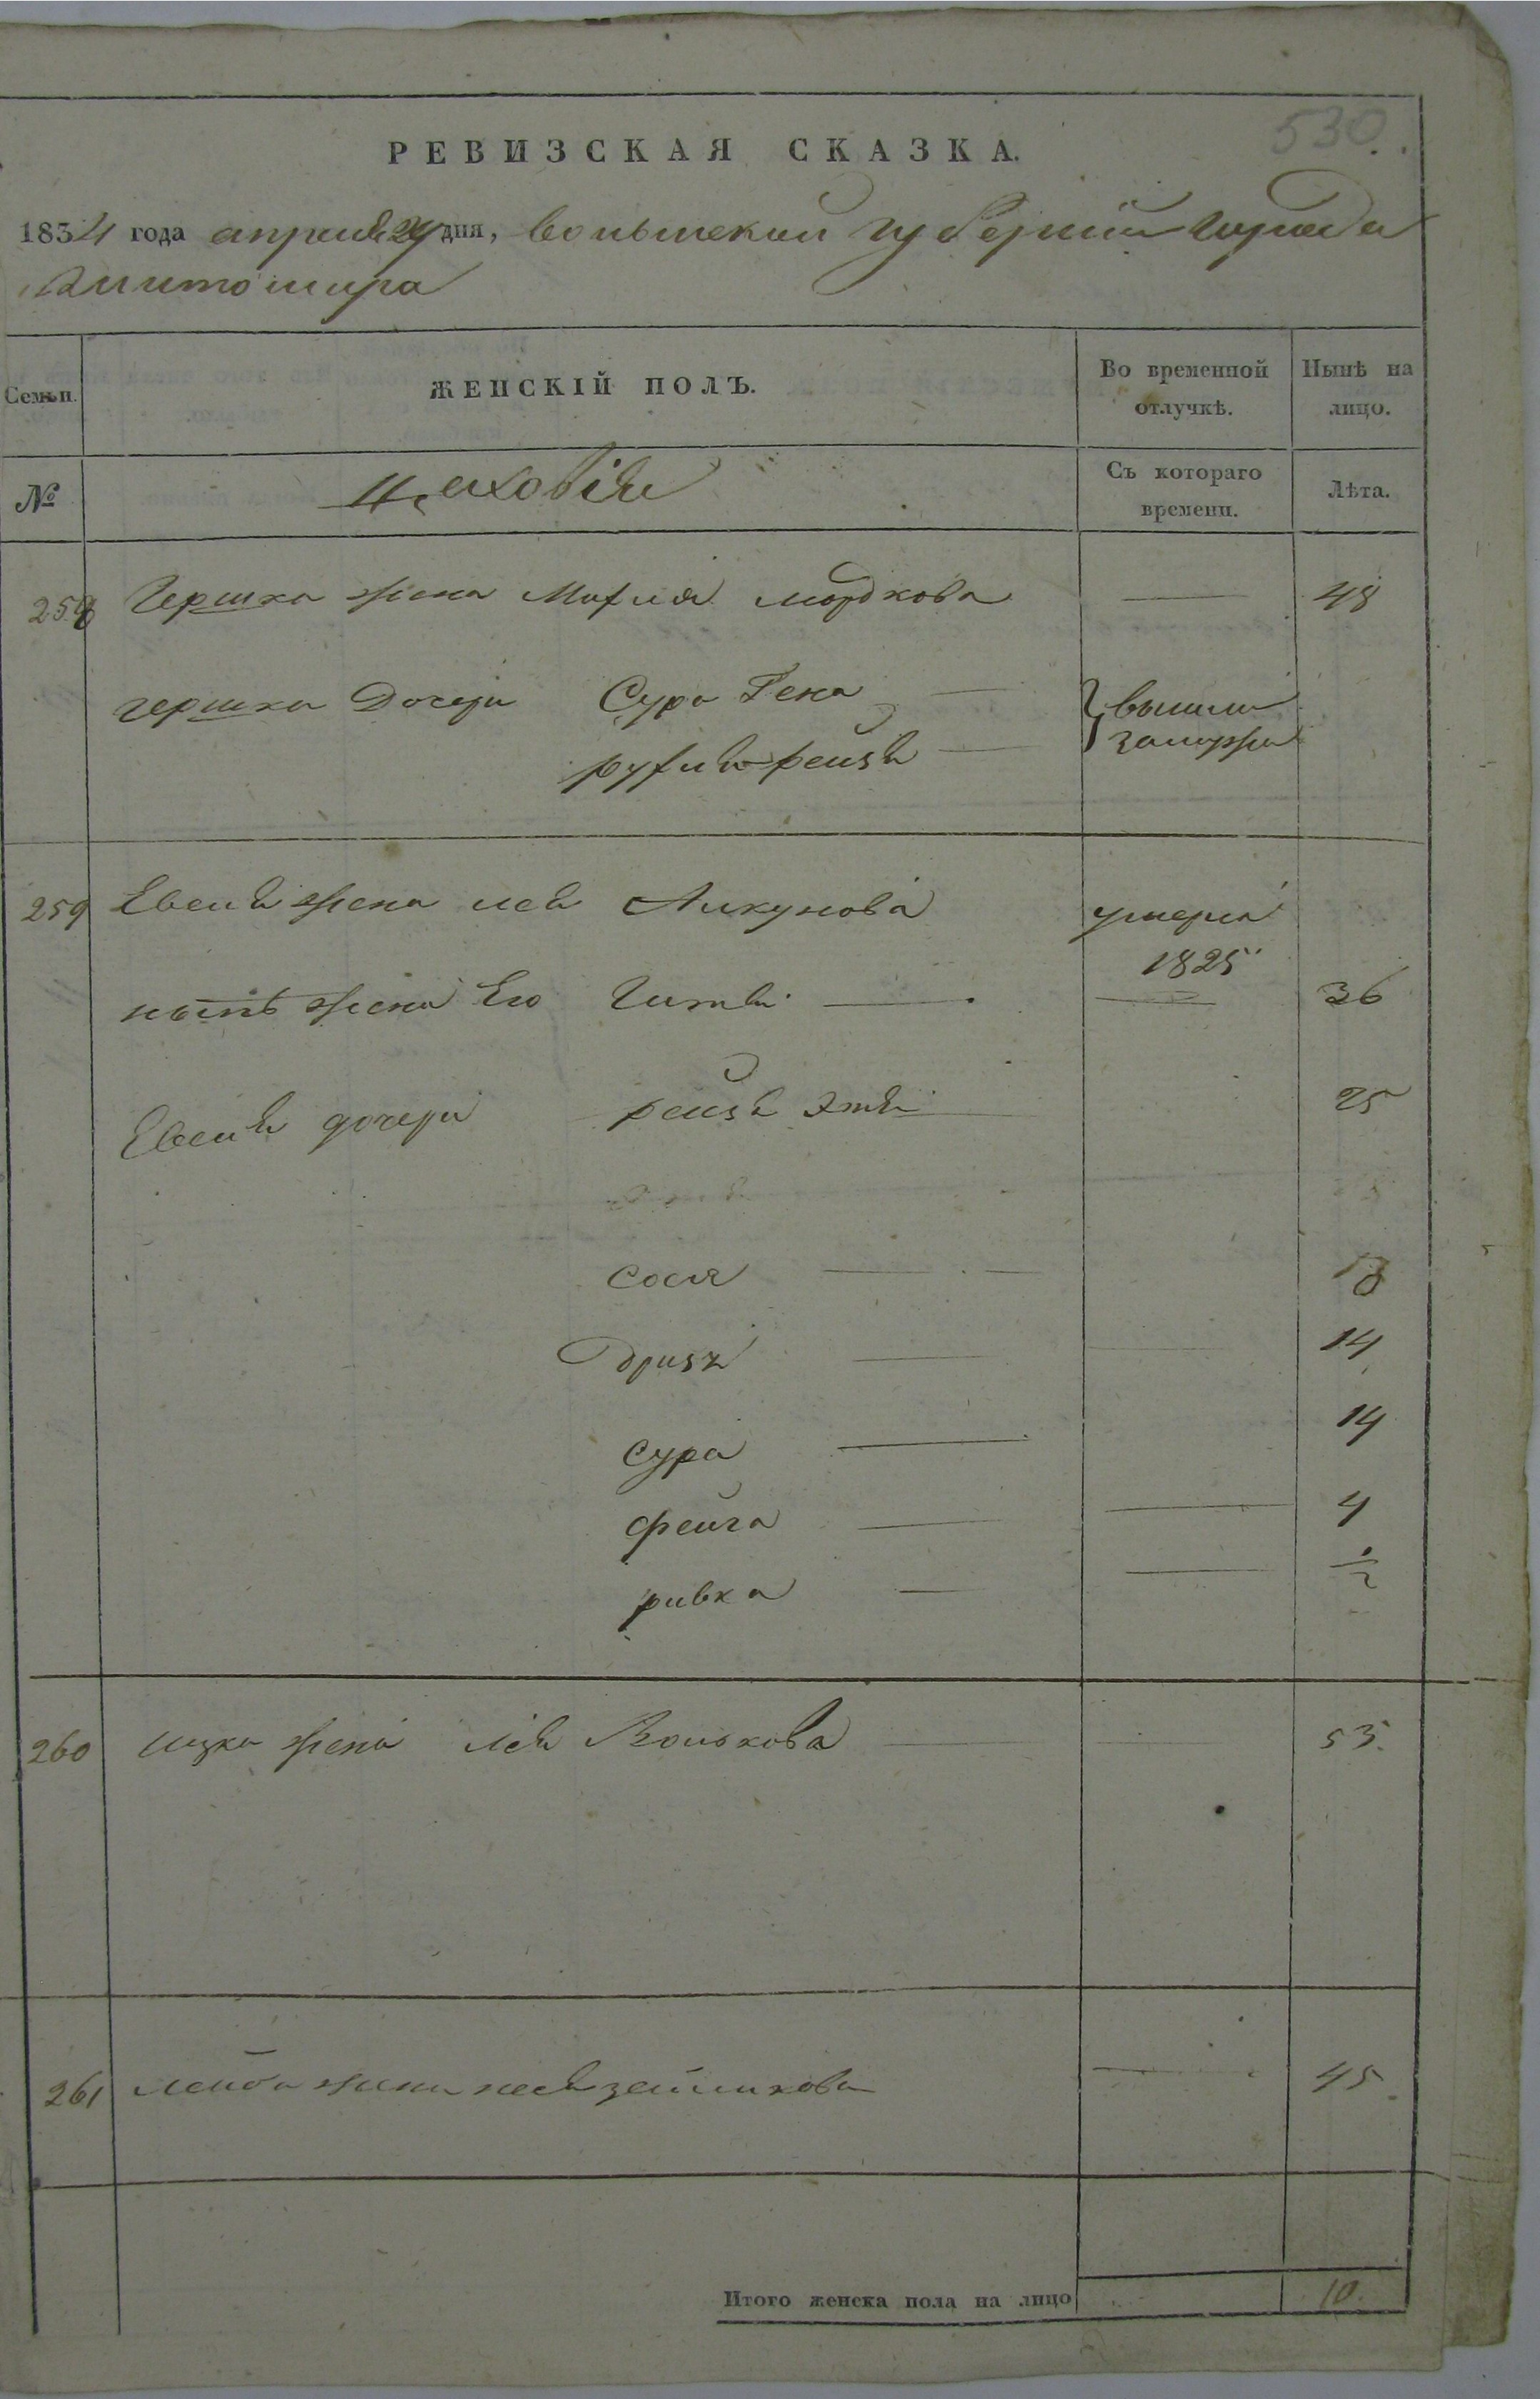 530.
РЕВИЗСКАЯ СКАЗКА.
1834 года апреля 24 дня, волынской губерніи города
Житомира
Семьи. ЖЕНСКІЙ ПОЛЪ. Во временной отлучкѣ. Нынѣ на лицо.
№ Цеховіи Съ котораго времени. Лѣта.
258 Гершка жена Махля мордкова — 48
гершка дочери Сура Гена — вышли
рухля рейзя — замужъ
259 Евеля жена лея умерла
1825
нынѣ жена Его Гитля — 36
Евеля дочери рейзя Этя 25
Сося — 18
14
сура — 14
фейга — 4
ривка — ½
260 ицка жена лея Волькова — 53.
261 лейба жена 45.
Итого женска пола на лицо 10.